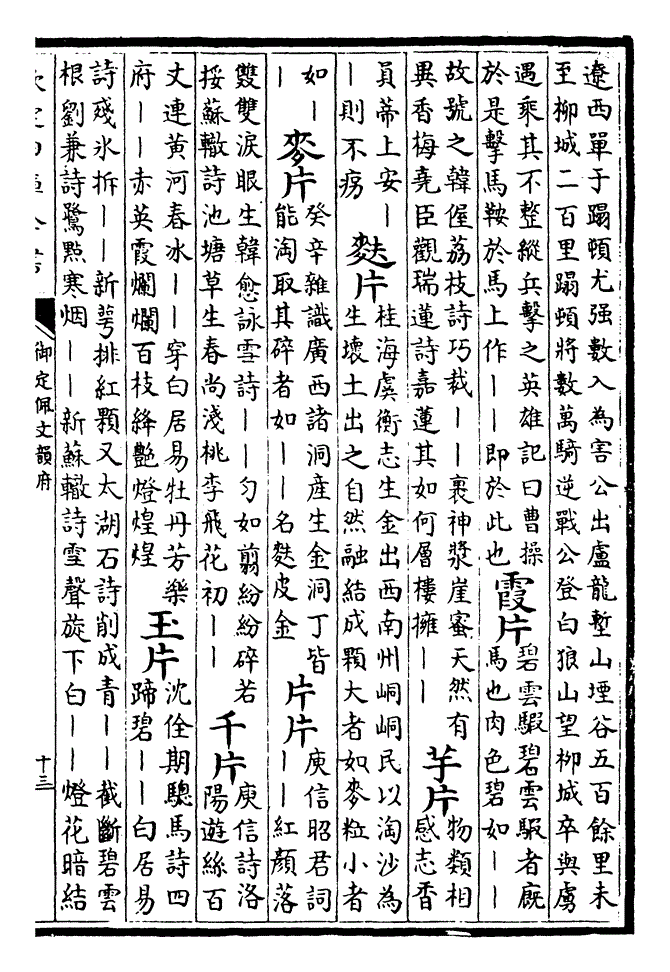 遼西單于蹋頓尤强數入為害公出盧龍塹山堙谷五百餘里未
至柳城二百里蹋頓將數萬騎逆戰公登白狼山望柳城卒與虜
遇乘其不整縱兵擊之英雄記曰曹操
於是擊馬鞍於馬上作——即於此也
霞片
碧雲騢碧雲騢者廐
馬也肉色碧如——
故號之韓偓荔枝詩巧裁——裹神漿崖蜜天然有
異香梅堯臣觀瑞蓮詩嘉蓮其如何層樓擁——
芋片
物類相
感志香
員蒂上安—
—則不痨
麩片
桂海虞衡志生金出西南州峒峒民以淘沙為
生壞土出之自然融結成顆大者如麥粒小者
如—
—
麥片
癸辛雜識廣西諸洞産生金洞丁皆
能淘取其碎者如——名麩皮金
片片
庾信昭君詞
——紅顔落
雙雙淚眼生韓愈詠雪詩——匀如翦紛紛碎若
挼蘇轍詩池塘草生春尚淺桃李飛花初——
千片
庾信詩洛
陽遊絲百
丈連黄河春氷——穿白居易牡丹芳樂
府——赤英霞爛爛百枝絳艷燈煌煌
玉片
沈佺期驄馬詩四
蹄碧——白居易
詩殘氷拆——新萼排紅顆又太湖石詩削成青——截斷碧雲
根劉兼詩鷺點寒烟——新蘇轍詩雪聲旋下白——燈花暗結
御定佩文韻府
十三